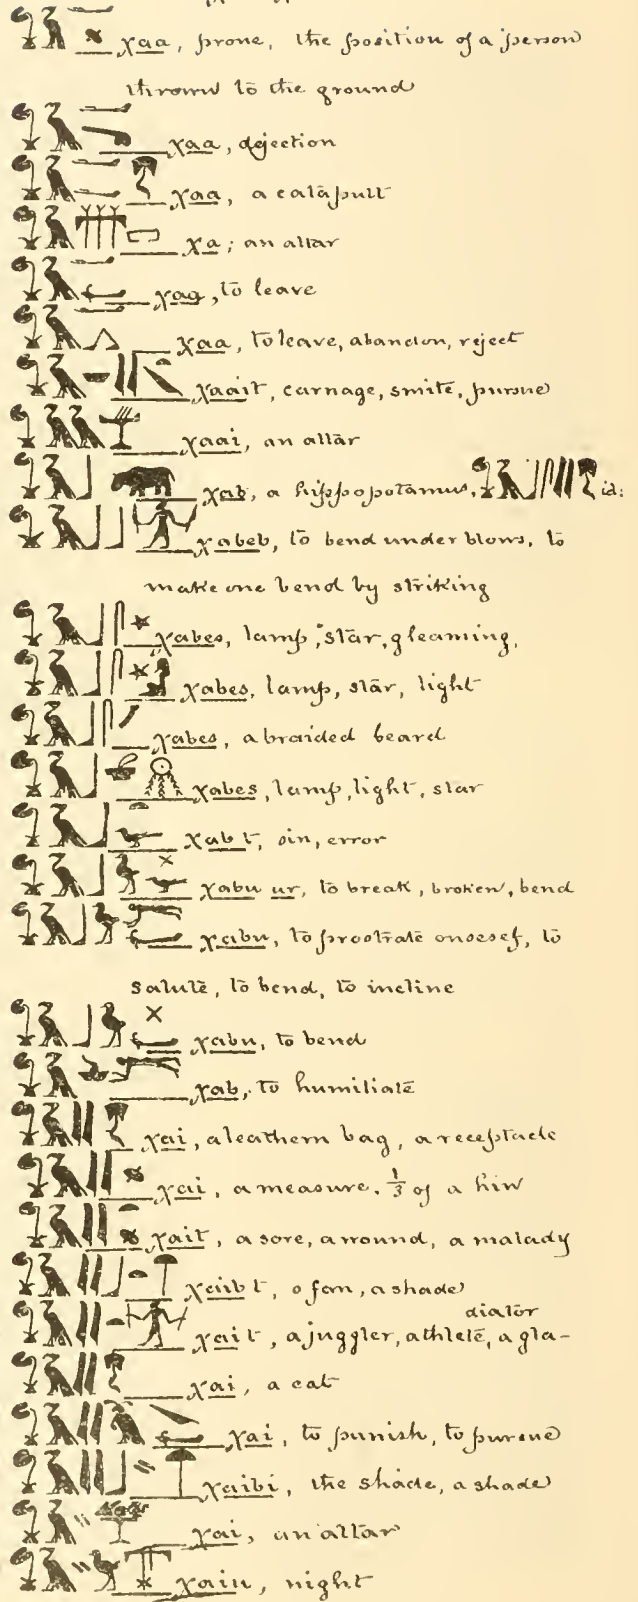 χaa, prone, the position of a person
thrown to the ground
χaa, dejection
χaa, a catapult
χa; an altar
χaa, to leave
χaa, to leave, abandon, reject
χaait, carnage, smite, pursue
χaai, an altar
χab, a hippopotamus, id:
χabeb, to bend under blows, to
make one bend by striking
χabes, lamp, star, gleaming,
χabes, lamp, star, light
χabes, a braided beard
χabes, lamp, light, star
χab t, sin, error
χabu ur, to break, broken, bend
χabu, to prostrate onesesf, to
salute, to bend, to incline
χabu, to bend
χab, to humiliate
χai, a leathern bag, a receptacle
χai, a measure. 1/3 of a hin
χait, a sore, a wound, a malady
χaib t, a fan, a shade
diator
χai t, a juggler, athlete, a gla-
χai, a cat
χai, to punish, to pursue
χaibi, the shade, a shade
χai, an altar
χaiu, night